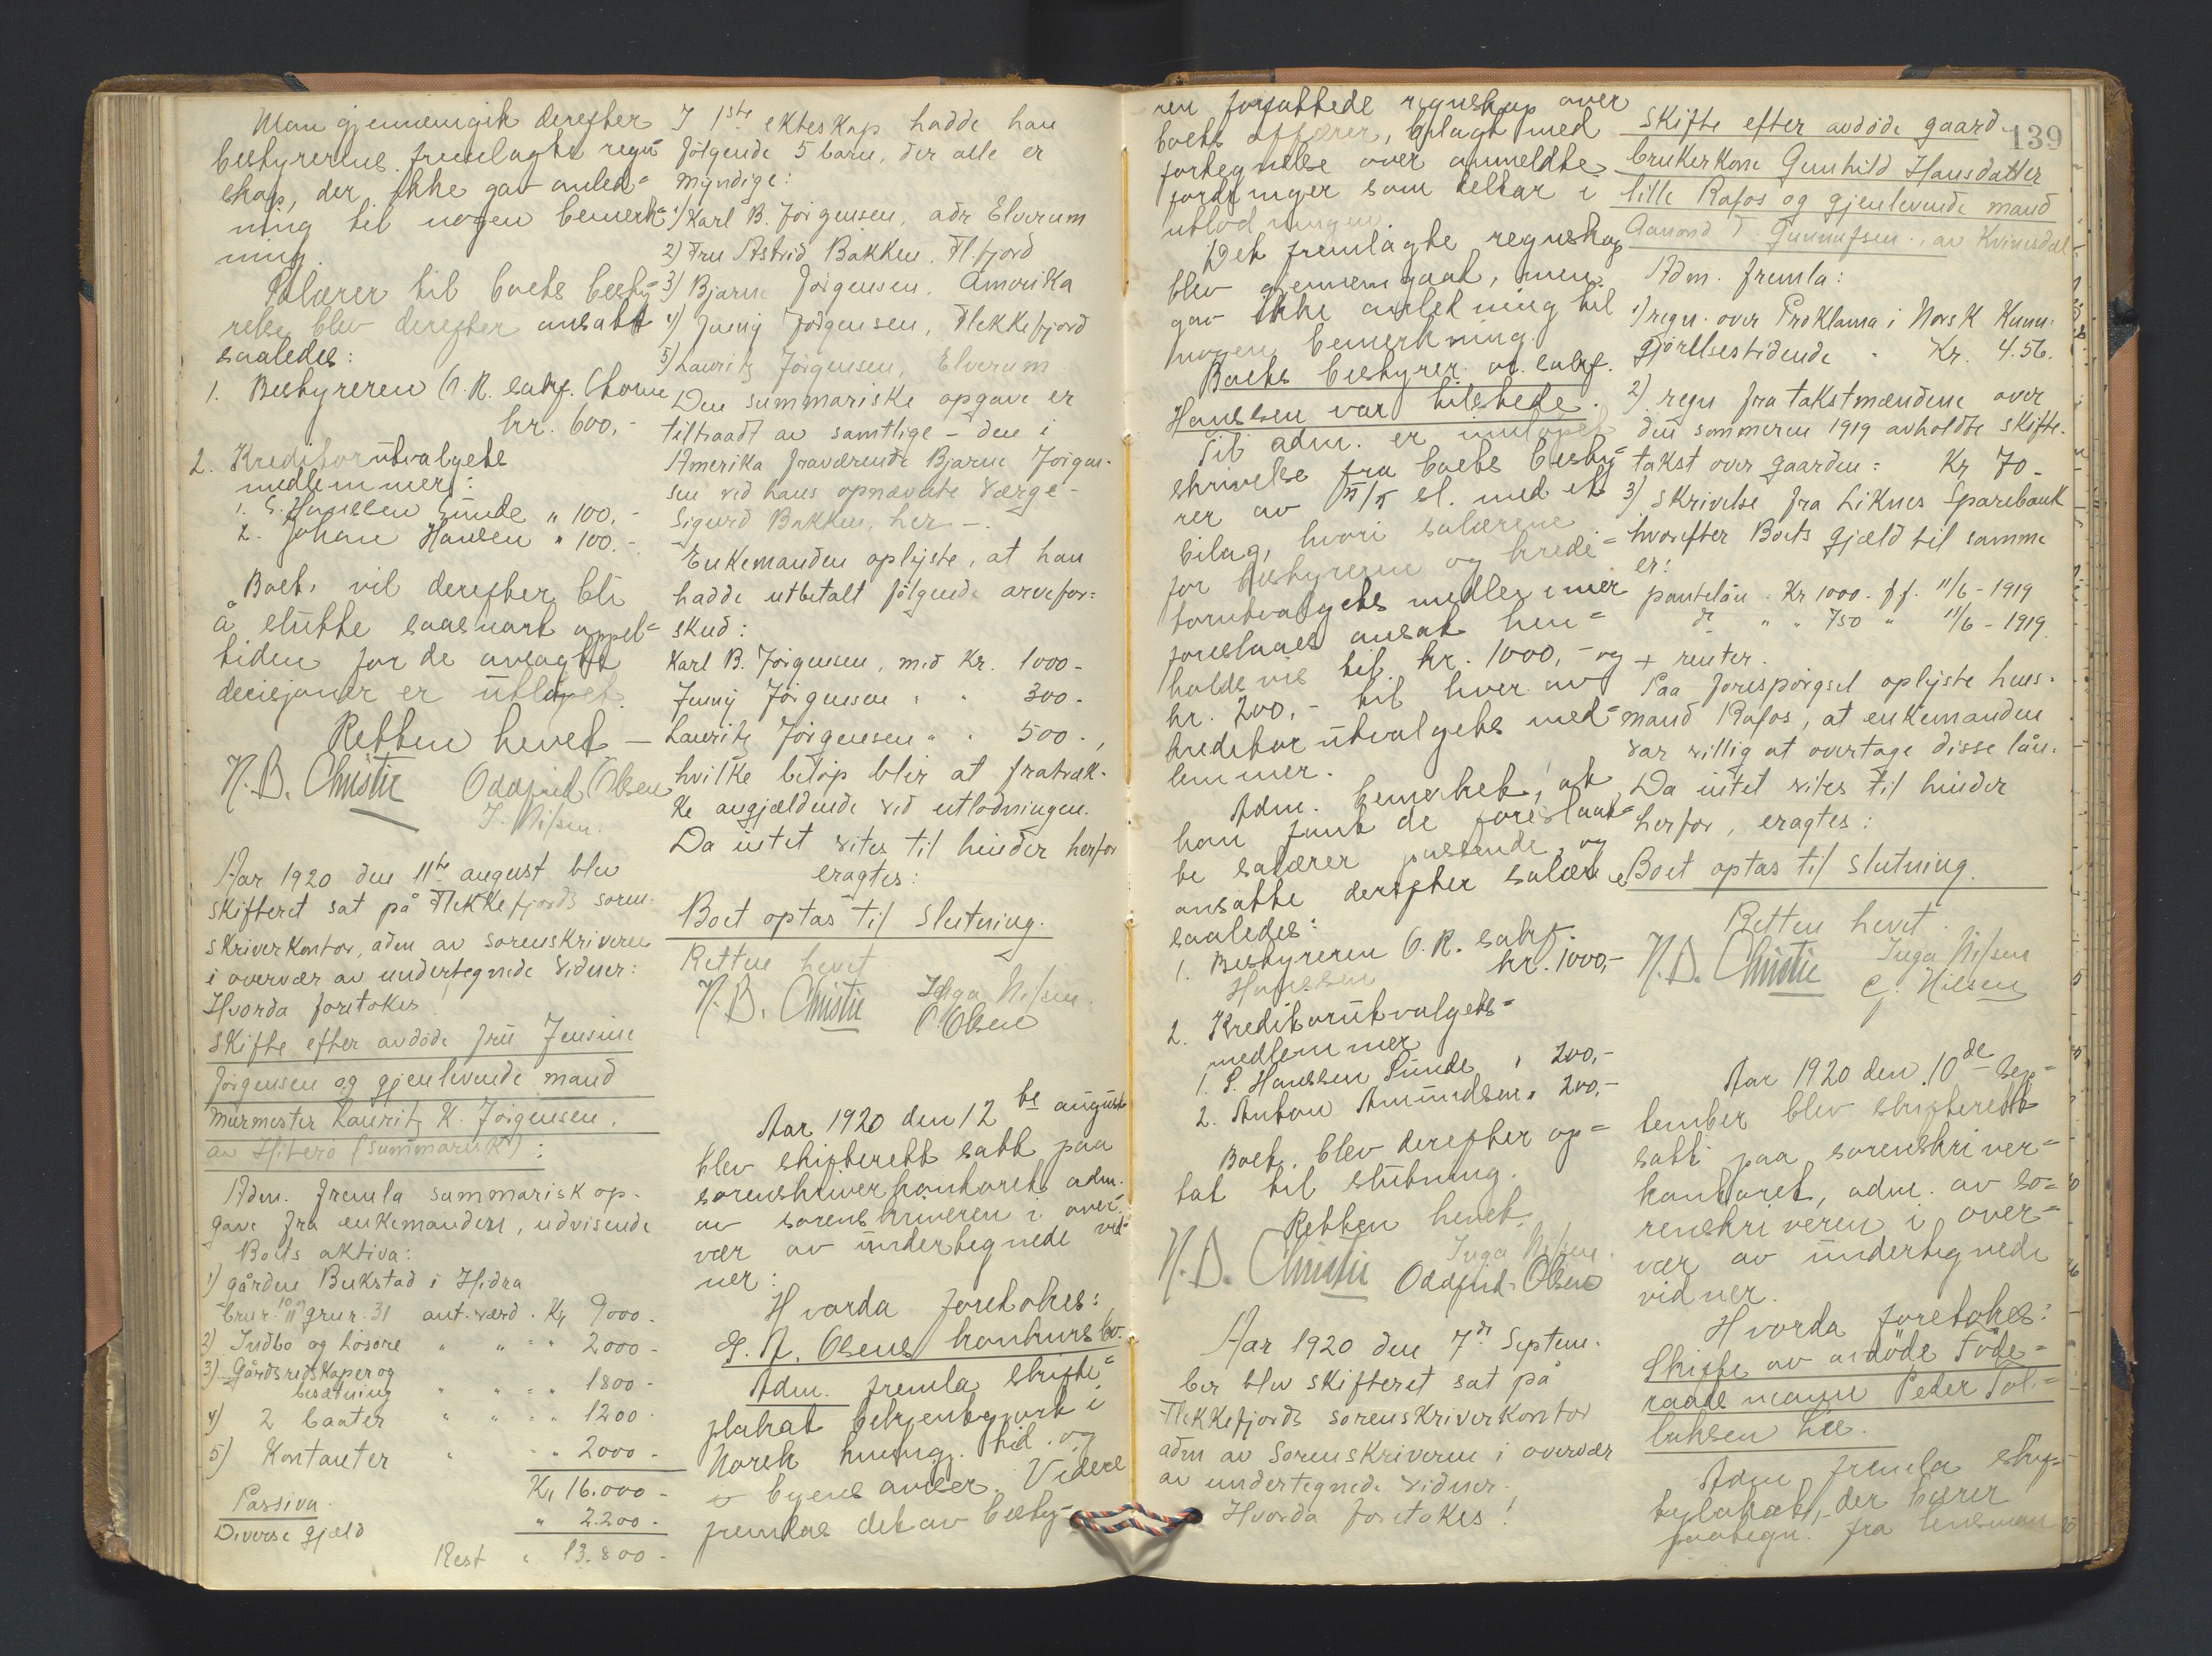 Man gjennemgik derefter
bestyrerens fremlagte regn=
skap, der ikke gav anled=
ning til nogen bemerk=
ning.
Salærer til boets besty=
relse blev derefter ansatt
saaledes:
1. Bestyreren O.R. sakf.
kr. 600,-
2. Kreditorutvalgets
medlemmer:
1. S. Hanssen Sunde " 100.-
2. Johan Hansen " 100.-
Boet vil derefter bli
å slutte saasnart appel=
tiden for de avsagte
decisjoner er utløpet.
Retten hevet —
N.B. Christie Oddfrid Olsen
J. Nilsen.
Aar 1920 den 11te august blev
skifteret sat på Flekkefjords soren-
skriverkontor, adm av sorenskriveren
i overvær av undertegnede vidner:
Hvorda foretokes
Skifte efter avdöde fru Jensine
Jörgensen og gjenlevende mand
murmester Lauritz K. Jörgensen,
av Hiterö (summarisk):
Adm. fremla summarisk op-
gave fra enkemanden, udvisende
Boets aktiva:
1) gården Bukstad i Hidra
brnr. 10 og 11 grnr. 31 ant. værd. Kr 9000-
2) Indbo og lösöre " " = " 2000-
3) Gårdsredskaper og
besætning " " = " 1800-
4) 2 baater " " = " 1200-
5) Kontanter " = " 2000-
Kr 16.000-
Passiva.
Diverse gjæld " 2.200-
Rest " 13.800-
I 1ste ekteskap hadde han
fölgende 5 barn, der alle er
myndige:
1) Karl B. Jörgensen, adr Elverum
2) Fru Astrid Bakken, Fl.fjord
3) Bjarne Jörgensen, Amerika
4) Jenny Jörgensen, Flekkefjord
5) Lauritz Jörgensen, Elverum.
Den summariske opgave er
tiltraadt av samtlige – den i
Amerika fraværende Bjarne Jörgen-
sen ved hans opnævnte Værge -
Sigurd Bakken, her -.
Enkemanden oplyste, at han
hadde utbetalt fölgende arvefor=
skud:
Karl B. Jörgensen, med Kr. 1000-
Jenny Jörgensen " " 300-
Lauritz Jörgensen " " 500-,
hvilke belöp blir at fratræk-
ke angjældende ved utlodningen.
Da intet vites til hinder herfor
eragtes:
Boet optas til slutning.
Retten hevet
N.B. Christie Inga Nilsen.
O. Olsen
Aar 1920 den 12te august
blev skifterett satt paa
sorenskriverkontoret, adm.
av sorenskriveren i over=
vær av undertegnede vid=
ner:
Hvorda foretokes:
Olsens konkursbo.
Adm. fremla skifte=
plakat bekjentgjort i
Norsk kundg. tid. og
i byens aviser. Videre
fremlas det av besty-
139
ren forfattede regnskap over
boets affærer, bilagt med
fortegnelse over anmeldte
fordringer som deltar i
utlodningen.
Det fremlagte regnskap
blev gjennemgaat, men
gav ikke anledning til
nogen bemerkning.
Boets bestyrer o.r. sakf.
Hanssen var tilstede.
Til adm. er innløpet
skrivelse fra boets besty=
rer av sl. med et
bilag, hvori salærene
for bestyreren og kredi=
torutvalgets medlemmer
foreslaaes ansat hen=
holdsvis til kr. 1000,- og
kr. 200,- til hver av
kreditorutvalgets med=
lemmer.
Adm. bemerket, at
han fant de foreslaat=
te salærer passende, og
ansatte derefter salærene
saaledes:
1. Bestyreren O.R. sakf.
Hanssen kr. 1000,-
2. Kreditorutvalgets=
medlemmer
1. S. Hanssen Sunde " 200,-
2. Anton Amundsen " 200,-
Boet blev derefter op=
tat til slutning.
Retten hevet.
N.B. Christie Inga Nilsen.
Oddfrid Olsen
Aar 1920 den 7de Septem-
ber blev skifteret sat på
Flekkefjords sorenskriverkontor
adm av Sorenskriveren i overvær
av undertegnede vidner.
Hvorda foretokes!
Skifte efter avdöde gaard-
brukerkone Gunhild Hansdatter
lille Rafos og gjenlevende mand
Aanond T. Gunnufsen, av Kvinesdal
Adm. fremla:
1) regn. over Proklama i Norsk Kunn-
gjörelsestidende - Kr. 4.56.
2) regn fra takstmændene over
den sommeren 1919 avholdte skifte-
takst over gaarden = Kr 70-
3) skrivelse fra Liknes Sparebank
hvorefter Boets gjæld til samme
er:
pantelån. Kr 1000- ff. 11/6 - 1919
do " " 750 " 11/6 - 1919
+ renter.
Paa forespörgsel oplyste hus-
mand Rafos, at enkemanden
var villig at overtage disse lån.
Da intet vites til hinder
herfor, eragtes:
Boet optas til slutning.
Retten hevet.
N.B. Christie Inga Nilsen
C. Nilsen
Aar 1920 den 10de sep=
tember blev skifterett
satt paa sorenskriver=
kontoret, adm. av so=
renskriveren i over=
vær av undertegnede
vidner.
Hvorda foretokes:
Skifte av avdöde Föde=
raadsmann Peder Tol=
laksen
Adm. fremla skif=
teplakat, der bærer
paategn. fra lensmann